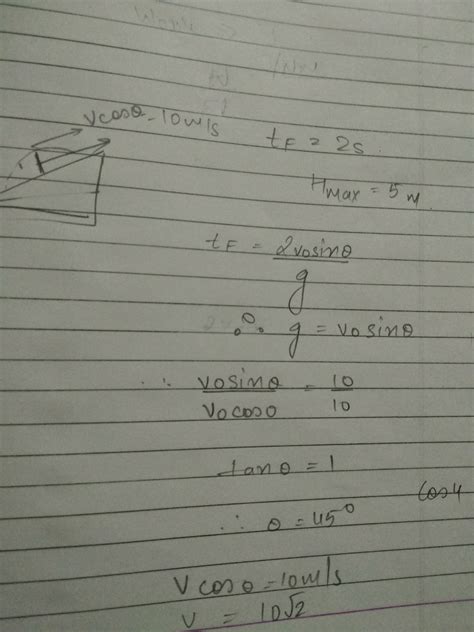 vcosθ - 10m/s
tF = 2s
Hmax = 5m
tF = 2vosinθ
g
∴ g = vosinθ
∴ vosinθ = 10
vocosθ 10
tanθ = 1
cos4
∴ θ = 45°
vcosθ = 10m/s
v = 10√2